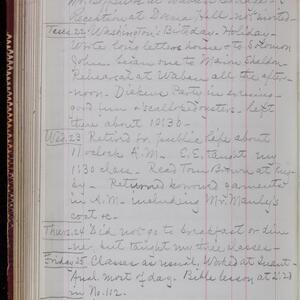 Reception at Dorms Hall - not
Tues. 22 Washington's Birthday. Holiday.
Wrote long letters home & to S
John. Sian one to Marion Sheldon
Rehearsal at Waban all the after-
noon. Dickens Party in evening -
good fun & scalloped oysters. Left
there about 10:30 -
Wed. 23 Retired fr. public life about
1 o'clock A.M. C.E. taught my
1:30 class. Read Tom Brown at Rug-
by - Returned borrowed garments
in A.M. including Mr. Manly's
coat &c -
Thurs. 24 Did not go to breakfast or din-
ner, but taught my three classes -
Friday 25 Classes as usual, Worked at
And. most of day. Bible lesson at
in No. 112 -